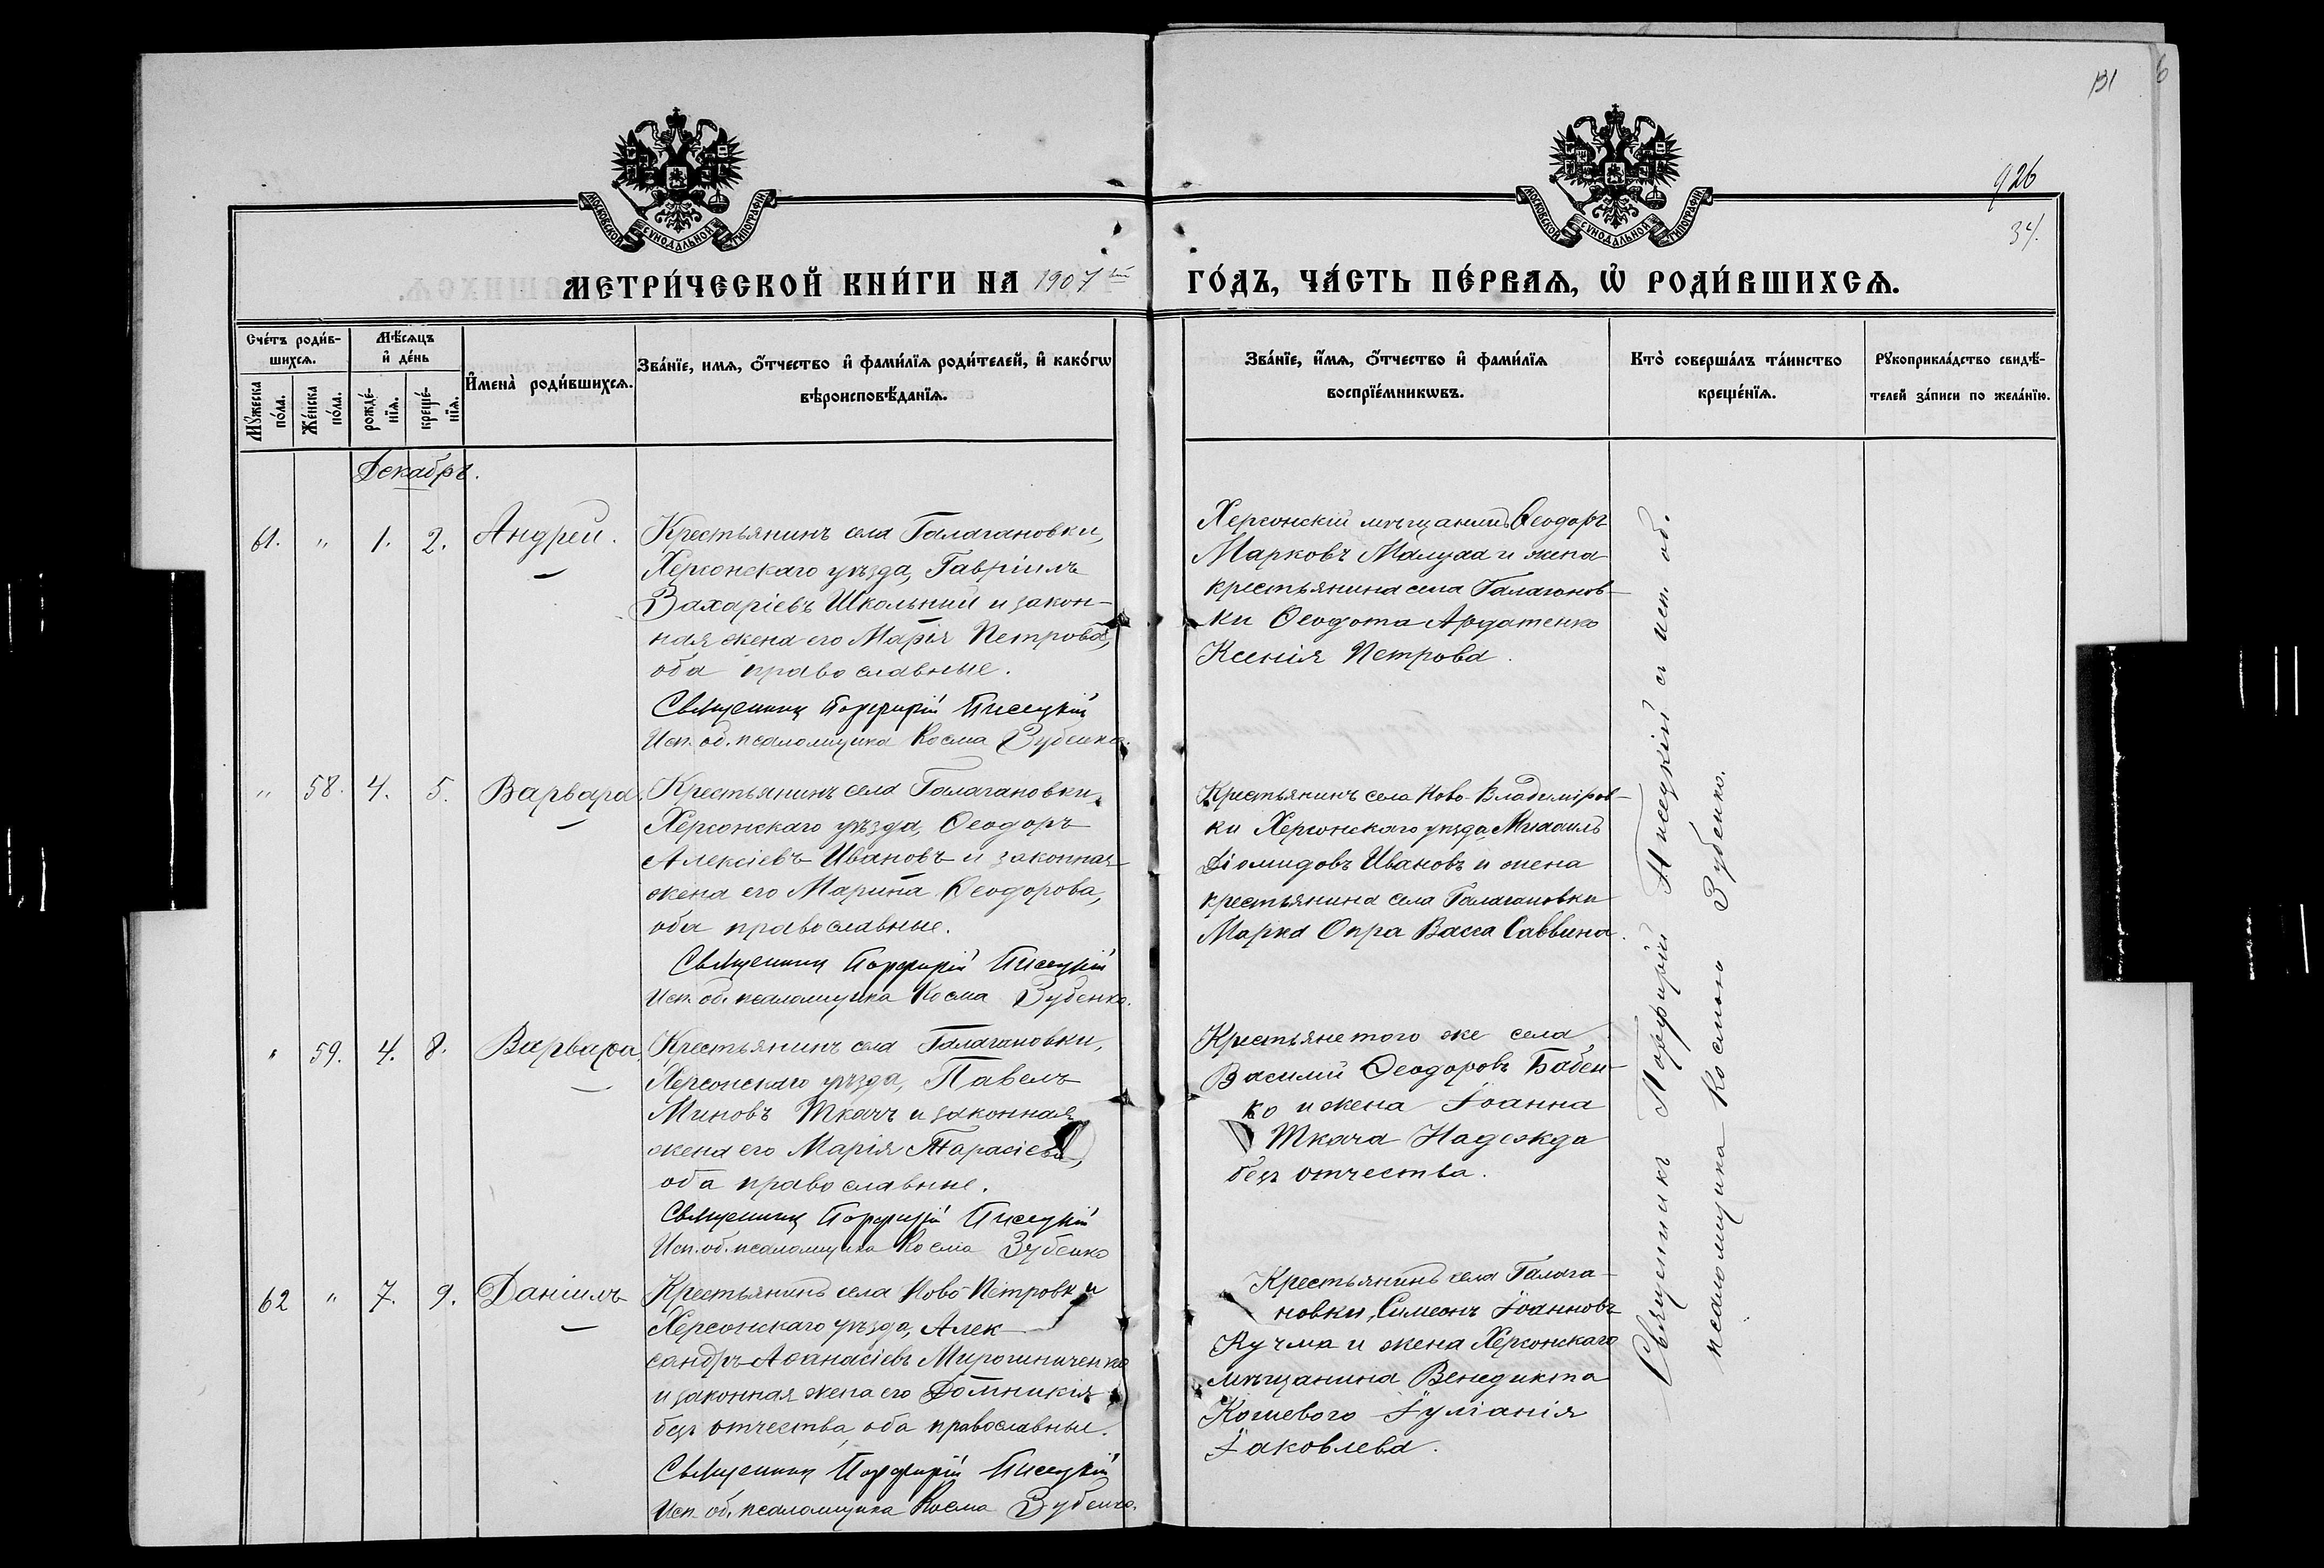 131
6
926
34.
МОСКОВСКОЙ СѴНОДАЛЬНОЙ ТИПОГРАФІИ
МОСКОВСКОЙ СѴНОДАЛЬНОЙ ТИПОГРАФІИ
МЕТРИ́ЧЕСКОЙ КНИ́ГИ НА 1907й ГО́ДЪ, ЧА́СТЬ ПЕ́РВАѦ, Ѡ҆ РОДИ́ВШИХСѦ.
Сче́тъ роди́в-
шихсѧ.
Мѣ́сѧцъ
и҆ де́нь
Мꙋ́жеска
по́ла.
Же́нска
по́ла.
рожде́-
нїѧ.
креще́-
нїѧ.
И҆мена̀ роди́вшихсѧ.
Зва́нїе, имѧ, ѻ҆́тчество и҆ фами́лїѧ роди́телей, и҆ како́гѡ
вѣроисповѣ́данїѧ.
Зва́нїе, и҆́мѧ, ѻ҆́тчество и҆ фами́лїѧ
воспрїе́мникѡвъ.
Кто̀ соверша́лъ та́инство
креще́нїѧ.
Рꙋкоприкла́дство свидѣ́-
телей за́писи по жела́нїю.
Декабрь.
61. " 1. 2. Андрей.
Крестьянинъ села Галагановки,
Херсонскаго уѣзда, Гавріилъ
Захаріевъ Школьний и закон-
ная жена его Марія Петрова,
оба православные.
Священникъ Порфирій Писецкій
Исп. об. псаломщика Косма Зубенко.
Херсонскій мѣщанинъ Ѳеодоръ
Марковъ и жена
крестьянина села Галаганов-
ки Ѳеодота
Ксенія Петрова.
" 58. 4. 5. Варвара.
Крестьянинъ села Галагановки,
Херсонскаго уѣзда, Ѳеодоръ
Алексіевъ Ивановъ и законная
жена его Марина Ѳеодорова,
оба православные.
Священникъ Порфирій Писецкій
Исп. об. псаломщика Косма Зубенко.
Крестьянинъ села Ново-Владиміров-
ки Херсонскаго уѣзда, Михаилъ
Діомидовъ Ивановъ и жена
крестьянина села Галагановки
Марка Опра Васса Саввина.
" 59. 4. 8. Варвара
Крестьянинъ села Галагановки,
Херсонскаго уѣзда, Павелъ
Миновъ Ткачъ и законная
жена его Марія Тарасіева,
оба православные.
Священникъ Порфирій Писецкій
Исп. об. псаломщика Косма Зубенко
Крестьяне того же села
Василий Ѳеодоровъ Бабен-
ко и жена Іоанна
Ткача Надежда
безъ отчества.
62 " 7. 9. Даніилъ
Крестьянинъ села Ново-Петровки
Херсонскаго уѣзда, Алек-
сандръ Аѳанасіевъ Мирошниченко
и законная жена его Домникія
безъ отчества, оба православные.
Священникъ Порфирій Писецкій
Исп. об. псаломщика Косма Зубенко.
Крестьянинъ села Галага-
новки, Симеонъ Іоанновъ
Кучма и жена Херсонскаго
мѣщанина Венедикта
Кошевого Іуліанія
Іаковлева.
Священникъ Порфирій Писецкій съ исп. об.
псаломщика Космою Зубенко.